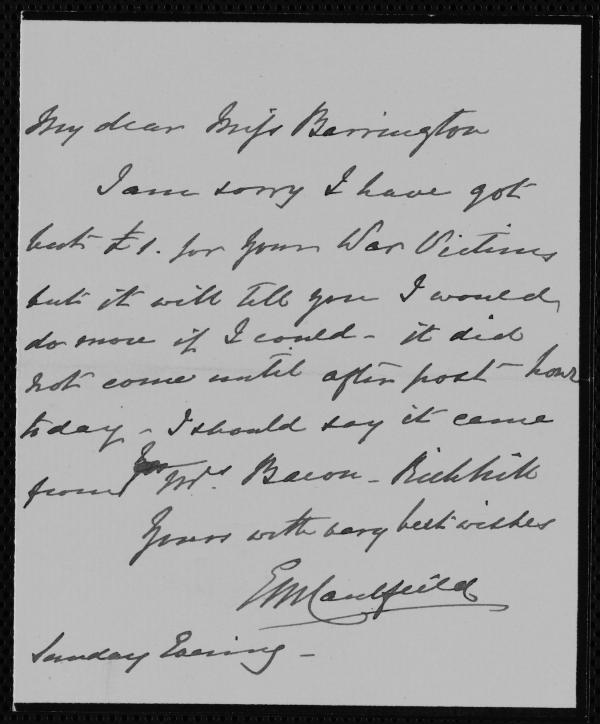 My dear Miss Barrington
I am sorry I have got
but £1. for your War Victims
but it will tell you I would
do more if I could - it did
not come until after post hour
today - I should say it came
from Mrs Bacon - Richhill
Yours with very best wishes
E M Caulfeild
Sunday Evening -